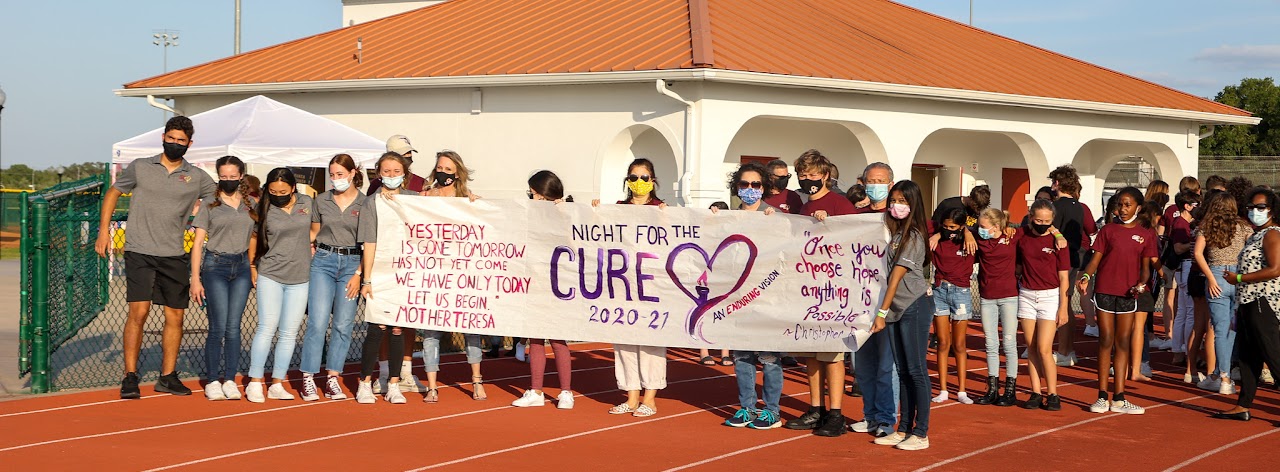 "YESTERDAY
IS GONE TOMORROW
HAS NOT YET COME
WE HAVE ONLY TODAY
LET US BEGIN."
- MOTHER TERESA
NIGHT FOR THE
CURE
2020-21
AN ENDURING VISION
"Once you
choose hope
anything is
Possible"
~Christopher